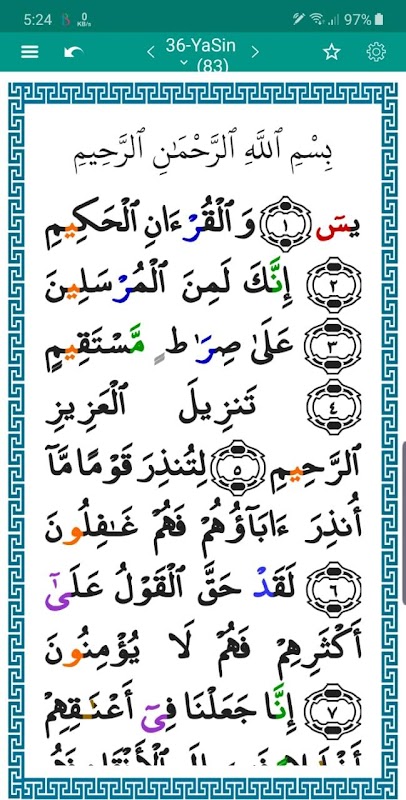 5:24 0 KB/s 97%
36-YaSin
(83)
بِسْمِ ٱللَّهِ ٱلرَّحْمَـٰنِ ٱلرَّحِيمِ
يسٓ ١ وَٱلْقُرْءَانِ ٱلْحَكِيمِ
٢ إِنَّكَ لَمِنَ ٱلْمُرْسَلِينَ
٣ عَلَىٰ صِرَٰطٍ مُّسْتَقِيمٍ
٤ تَنزِيلَ ٱلْعَزِيزِ
ٱلرَّحِيمِ ٥ لِتُنذِرَ قَوْمًا مَّآ
أُنذِرَ ءَابَآؤُهُمْ فَهُمْ غَـٰفِلُونَ
٦ لَقَدْ حَقَّ ٱلْقَوْلُ عَلَىٰٓ
أَكْثَرِهِمْ فَهُمْ لَا يُؤْمِنُونَ
٧ إِنَّا جَعَلْنَا فِىٓ أَعْنَـٰقِهِمْ